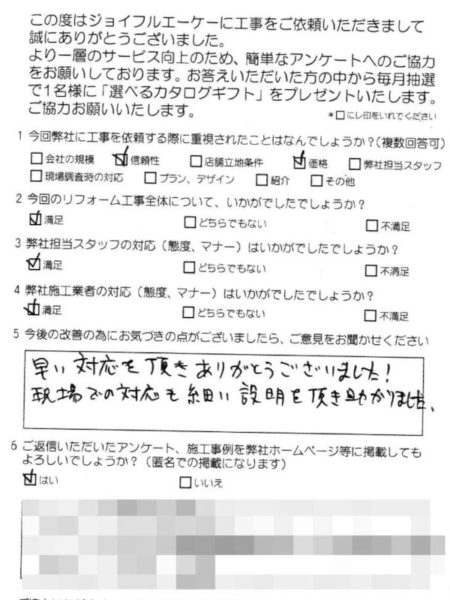 この度はジョイフルエーケーに工事をご依頼いただきまして
誠にありがとうございました。
より一層のサービス向上のため、簡単なアンケートへのご協力
をお願いしております。お答えいただいた方の中から毎月抽選
で1名様に「選べるカタログギフト」をプレゼントいたします。
ご協力お願いいたします。
*□にレ印をいれてください
1 今回弊社に工事を依頼する際に重視されたことはなんでしょうか?(複数回答可)
□会社の規模 ☑信頼性 □店舗立地条件 ☑価格 □弊社担当スタッフ
□現場調査時の対応 □プラン、デザイン □紹介 □その他
2 今回のリフォーム工事全体について、いかがでしたでしょうか?
☑満足 □どちらでもない □不満足
3 弊社担当スタッフの対応(態度、マナー)はいかがでしたでしょうか?
☑満足 □どちらでもない □不満足
4 弊社施工業者の対応(態度、マナー)はいかがでしたでしょうか?
☑満足 □どちらでもない □不満足
5 今後の改善の為にお気づきの点がございましたら、ご意見をお聞かせください
早い対応を頂きありがとうございました!
現場での対応も細い説明を頂き助かりました。
6 ご返信いただいたアンケート、施工事例を弊社ホームページ等に掲載しても
よろしいでしょうか?(匿名での掲載になります)
☑はい □いいえ